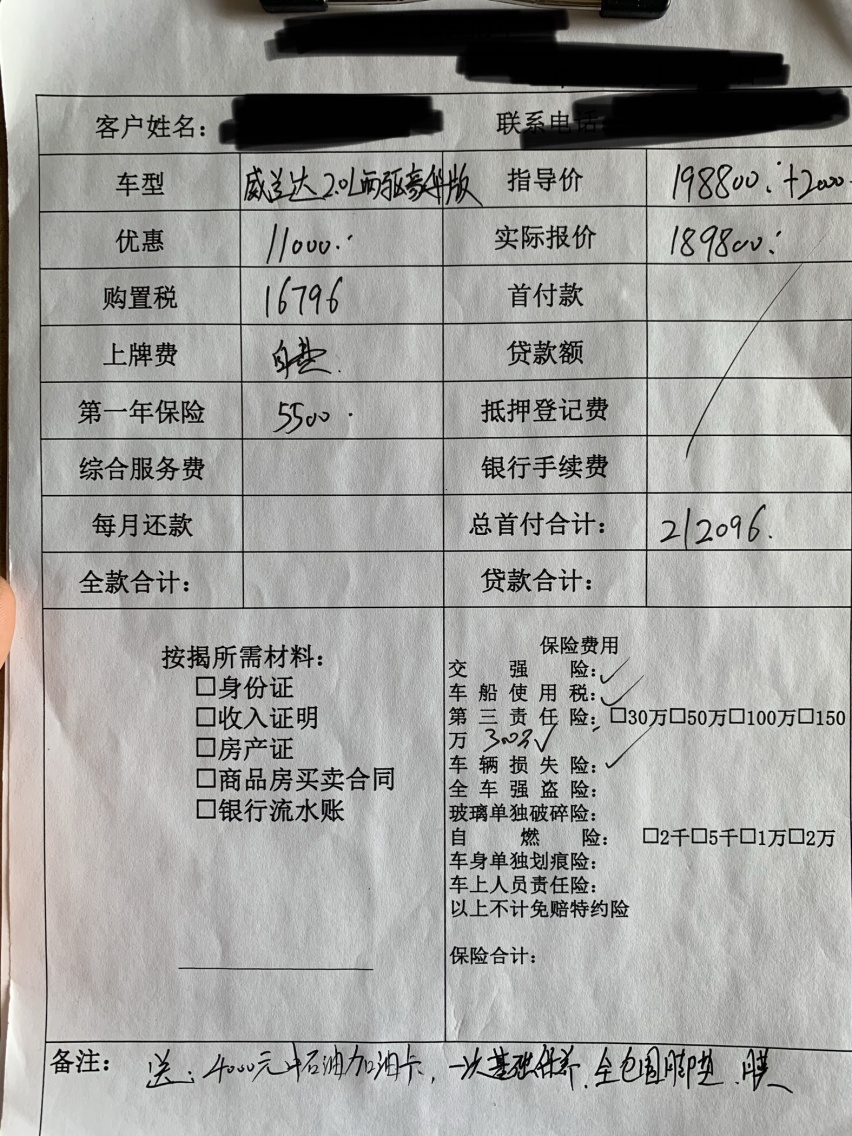 客户姓名： 联系电话
车型 威兰达2.0L两驱豪华版 指导价 198800.+2000.
优惠 11000. 实际报价 189800.
购置税 16796 首付款
上牌费 自 贷款额
第一年保险 5500. 抵押登记费
综合服务费 银行手续费
每月还款 总首付合计： 212096.
全款合计： 贷款合计：
按揭所需材料：
□身份证
□收入证明
□房产证
□商品房买卖合同
□银行流水账
保险费用
交强险：✓
车船使用税：✓
第三责任险：□30万□50万□100万□150
万 300万✓
车辆损失险：✓
全车强盗险：
玻璃单独破碎险：
自燃险： □2千□5千□1万□2万
车身单独划痕险：
车上人员责任险：
以上不计免赔特约险
保险合计：
备注： 送：4000元中石油加油卡，一次基础保养、全包围脚垫、膜